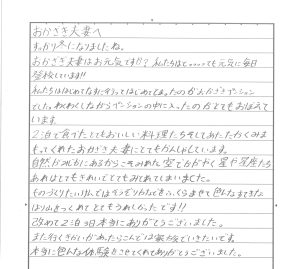 おかざき夫妻へ
すっかり冬になりましたね。
おかざき夫妻はお元気ですか? 私たちはとっっっても元気に毎日
登校しています!!
私たちははじめてなすに行ってはじめてとまったのがおかざきペンション
でした。わくわくしながらペンションの中に入ったのがとてもおぼえて
います
2泊で食べたとてもおいしい料理たちそしてあたたかくみま
もってくれたおかざき夫妻にとてもかんしゃしています。
自然がゆたかにあるからこそのみれた空でかがやく星や星座たち
あれはとてもきれいでとてもみてれてしまいました。
ものづくりたいけんではペンギンかんなどをふっくらませて色んなすてきな
はり山をつくれてとてもうれしかったです!!
改めて2泊3日本当にありがとうございました。
また行くきかいがあったらこんどは家族で行きたいです。
本当に色んな体験をさせてくれてありがとうございました。